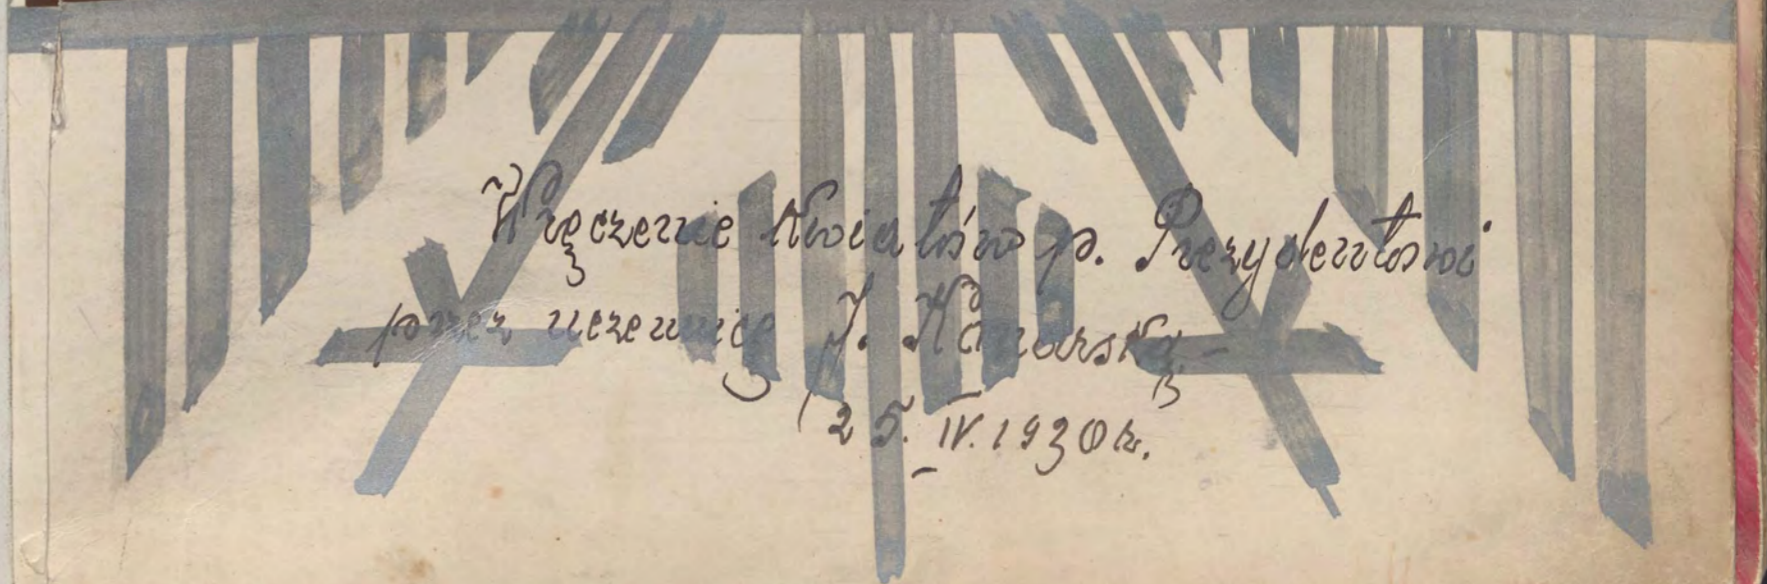 Wręczenie kwiatów p. Prezydentowi
przez uczennicę J. Kanarską -
25. IV. 1930 r.